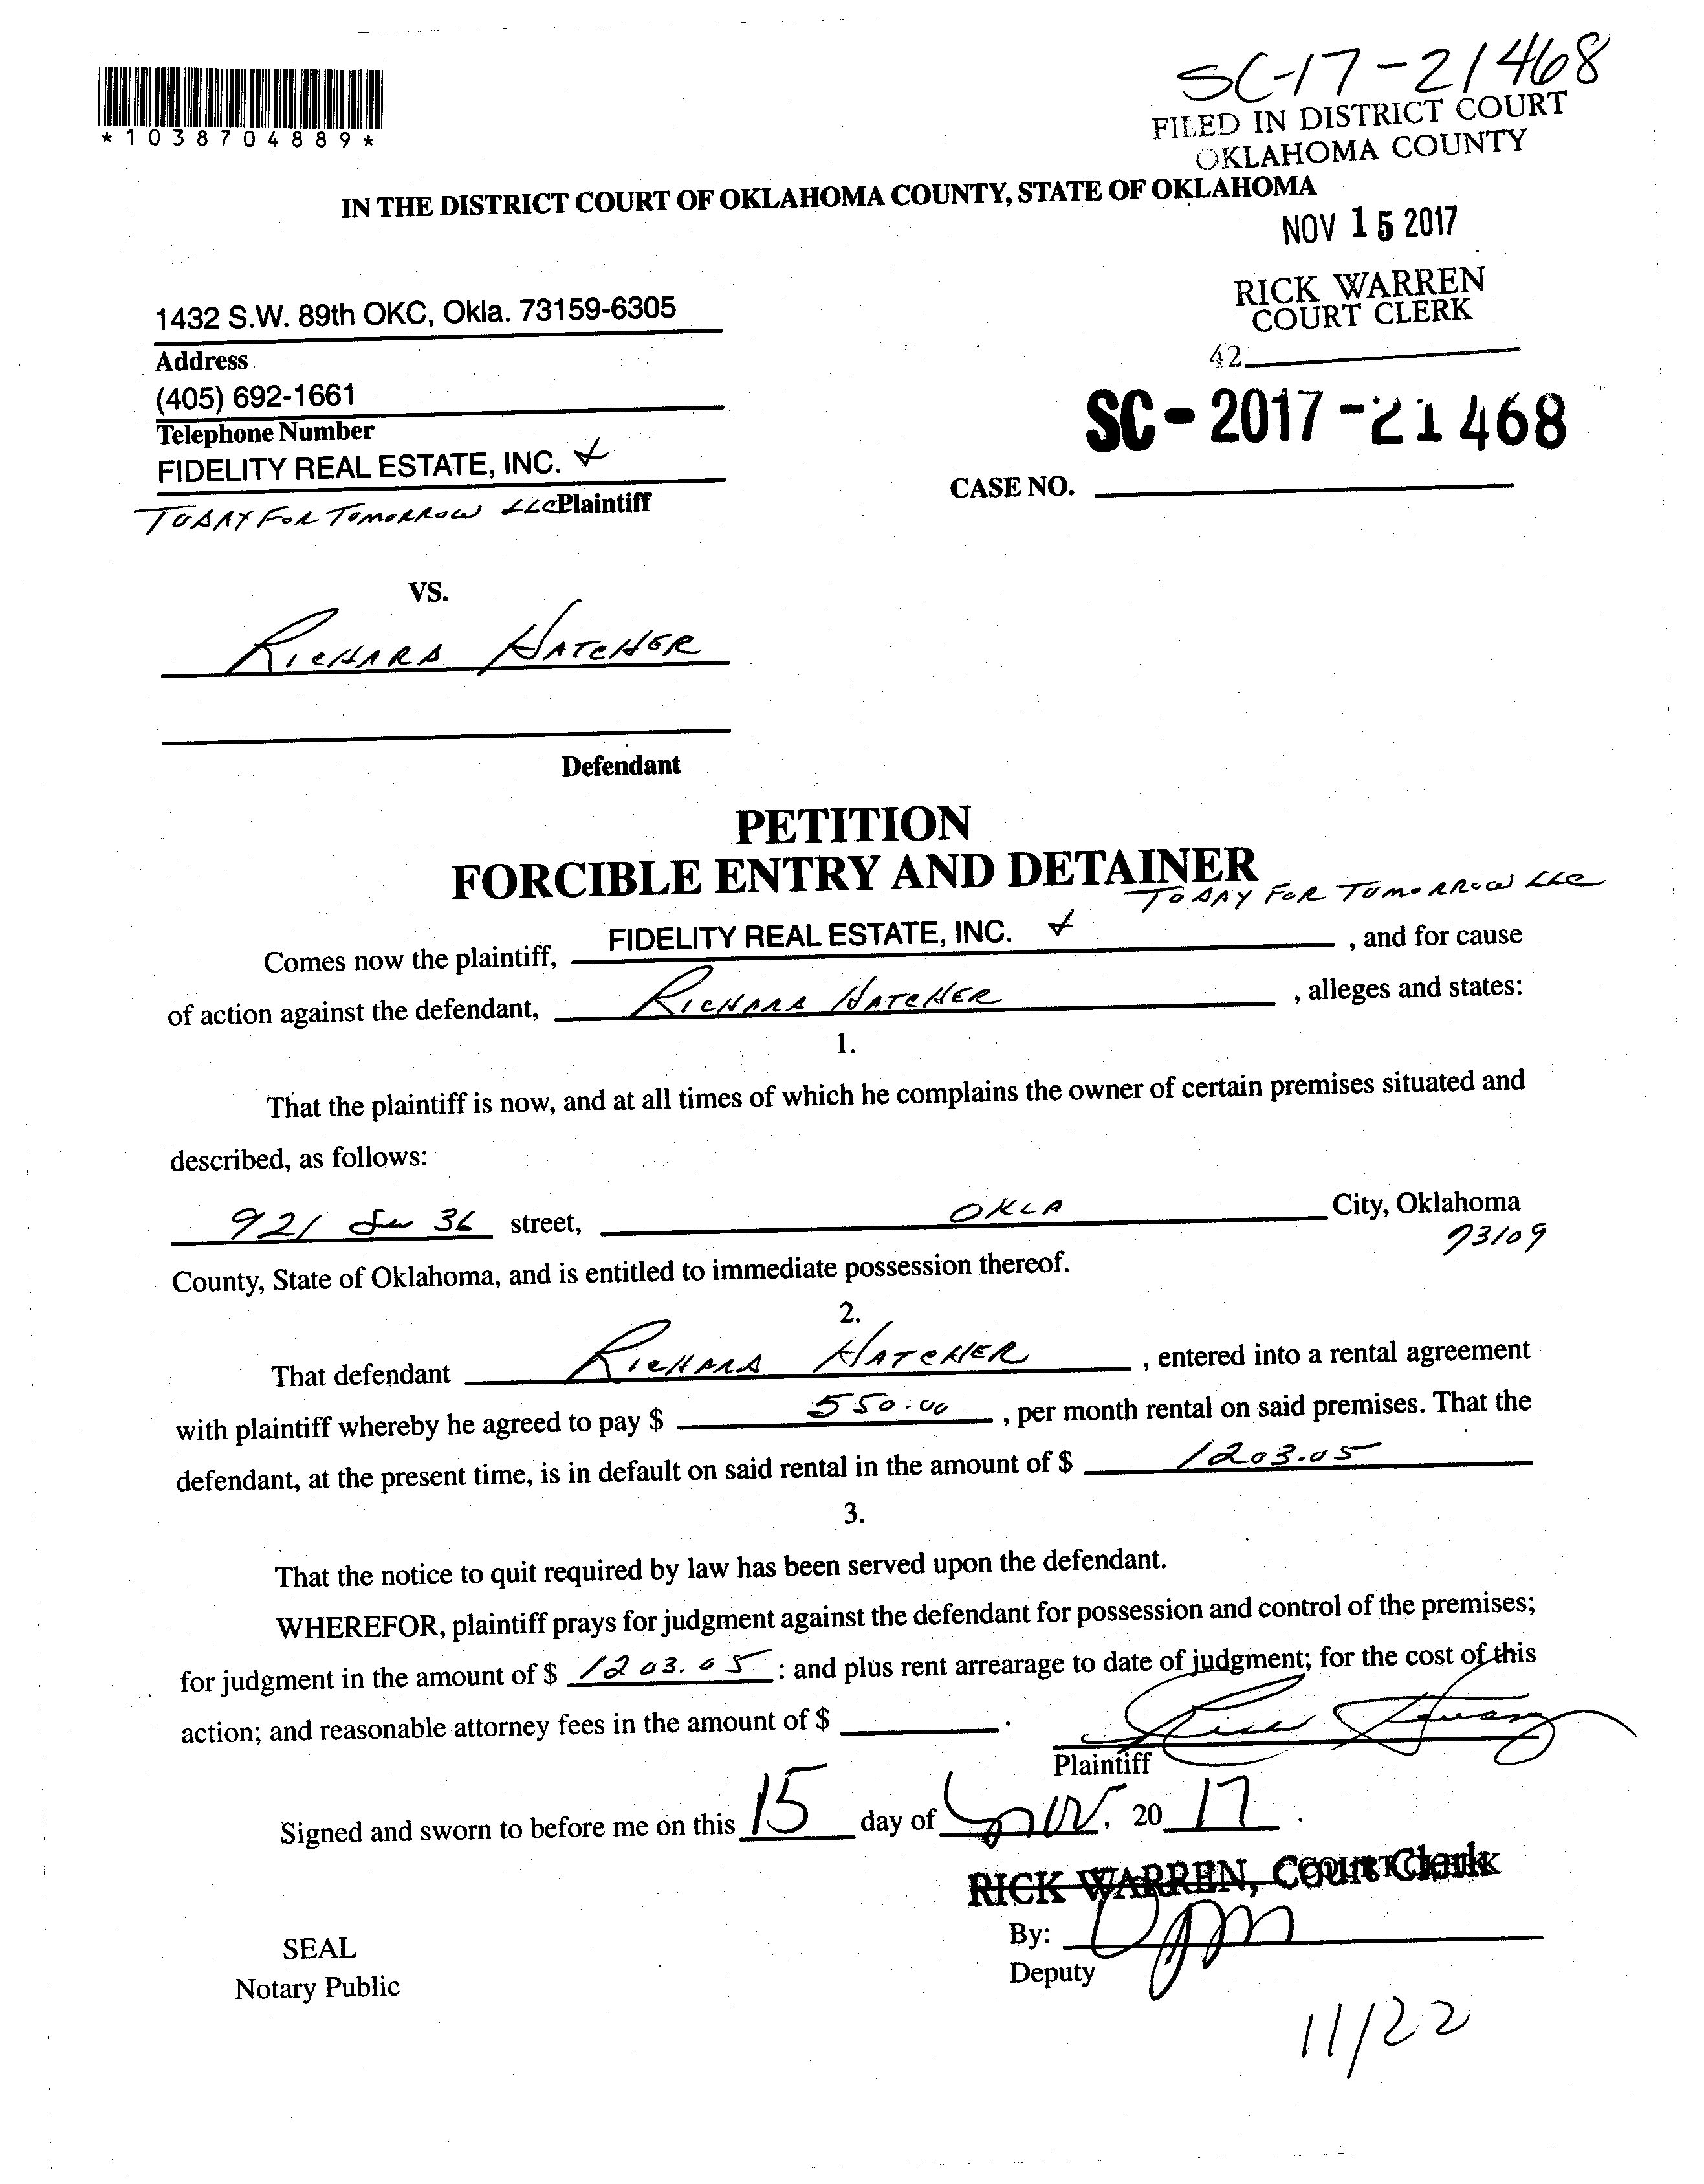 SC-17-21468
*1038704889*
FILED IN DISTRICT COURT
OKLAHOMA COUNTY
IN THE DISTRICT COURT OF OKLAHOMA COUNTY, STATE OF OKLAHOMA
NOV 15 2017
RICK WARREN
COURT CLERK
42
1432 S.W. 89th OKC, Okla. 73159-6305
Address
(405) 692-1661
Telephone Number
FIDELITY REAL ESTATE, INC. &
TODAY FOR TOMORROW LLC Plaintiff
SC-2017-21468
CASE NO.
VS.
RICHARD HATCHER
Defendant
PETITION
FORCIBLE ENTRY AND DETAINER
TODAY FOR TOMORROW LLC
Comes now the plaintiff, FIDELITY REAL ESTATE, INC. & , and for cause
of action against the defendant, RICHARD HATCHER , alleges and states:
1.
That the plaintiff is now, and at all times of which he complains the owner of certain premises situated and
described, as follows:
921 SW 36 street, OKLA City, Oklahoma
73109
County, State of Oklahoma, and is entitled to immediate possession thereof.
2.
That defendant RICHARD HATCHER , entered into a rental agreement
with plaintiff whereby he agreed to pay $ 550.00 , per month rental on said premises. That the
defendant, at the present time, is in default on said rental in the amount of $ 1203.05
3.
That the notice to quit required by law has been served upon the defendant.
WHEREFOR, plaintiff prays for judgment against the defendant for possession and control of the premises;
for judgment in the amount of $ 1203.05 : and plus rent arrearage to date of judgment; for the cost of this
action; and reasonable attorney fees in the amount of $ .
Plaintiff
Signed and sworn to before me on this 15 day of Nov, 20 17.
RICK WARREN, Court Clerk
By:
Deputy
SEAL
Notary Public
11/22